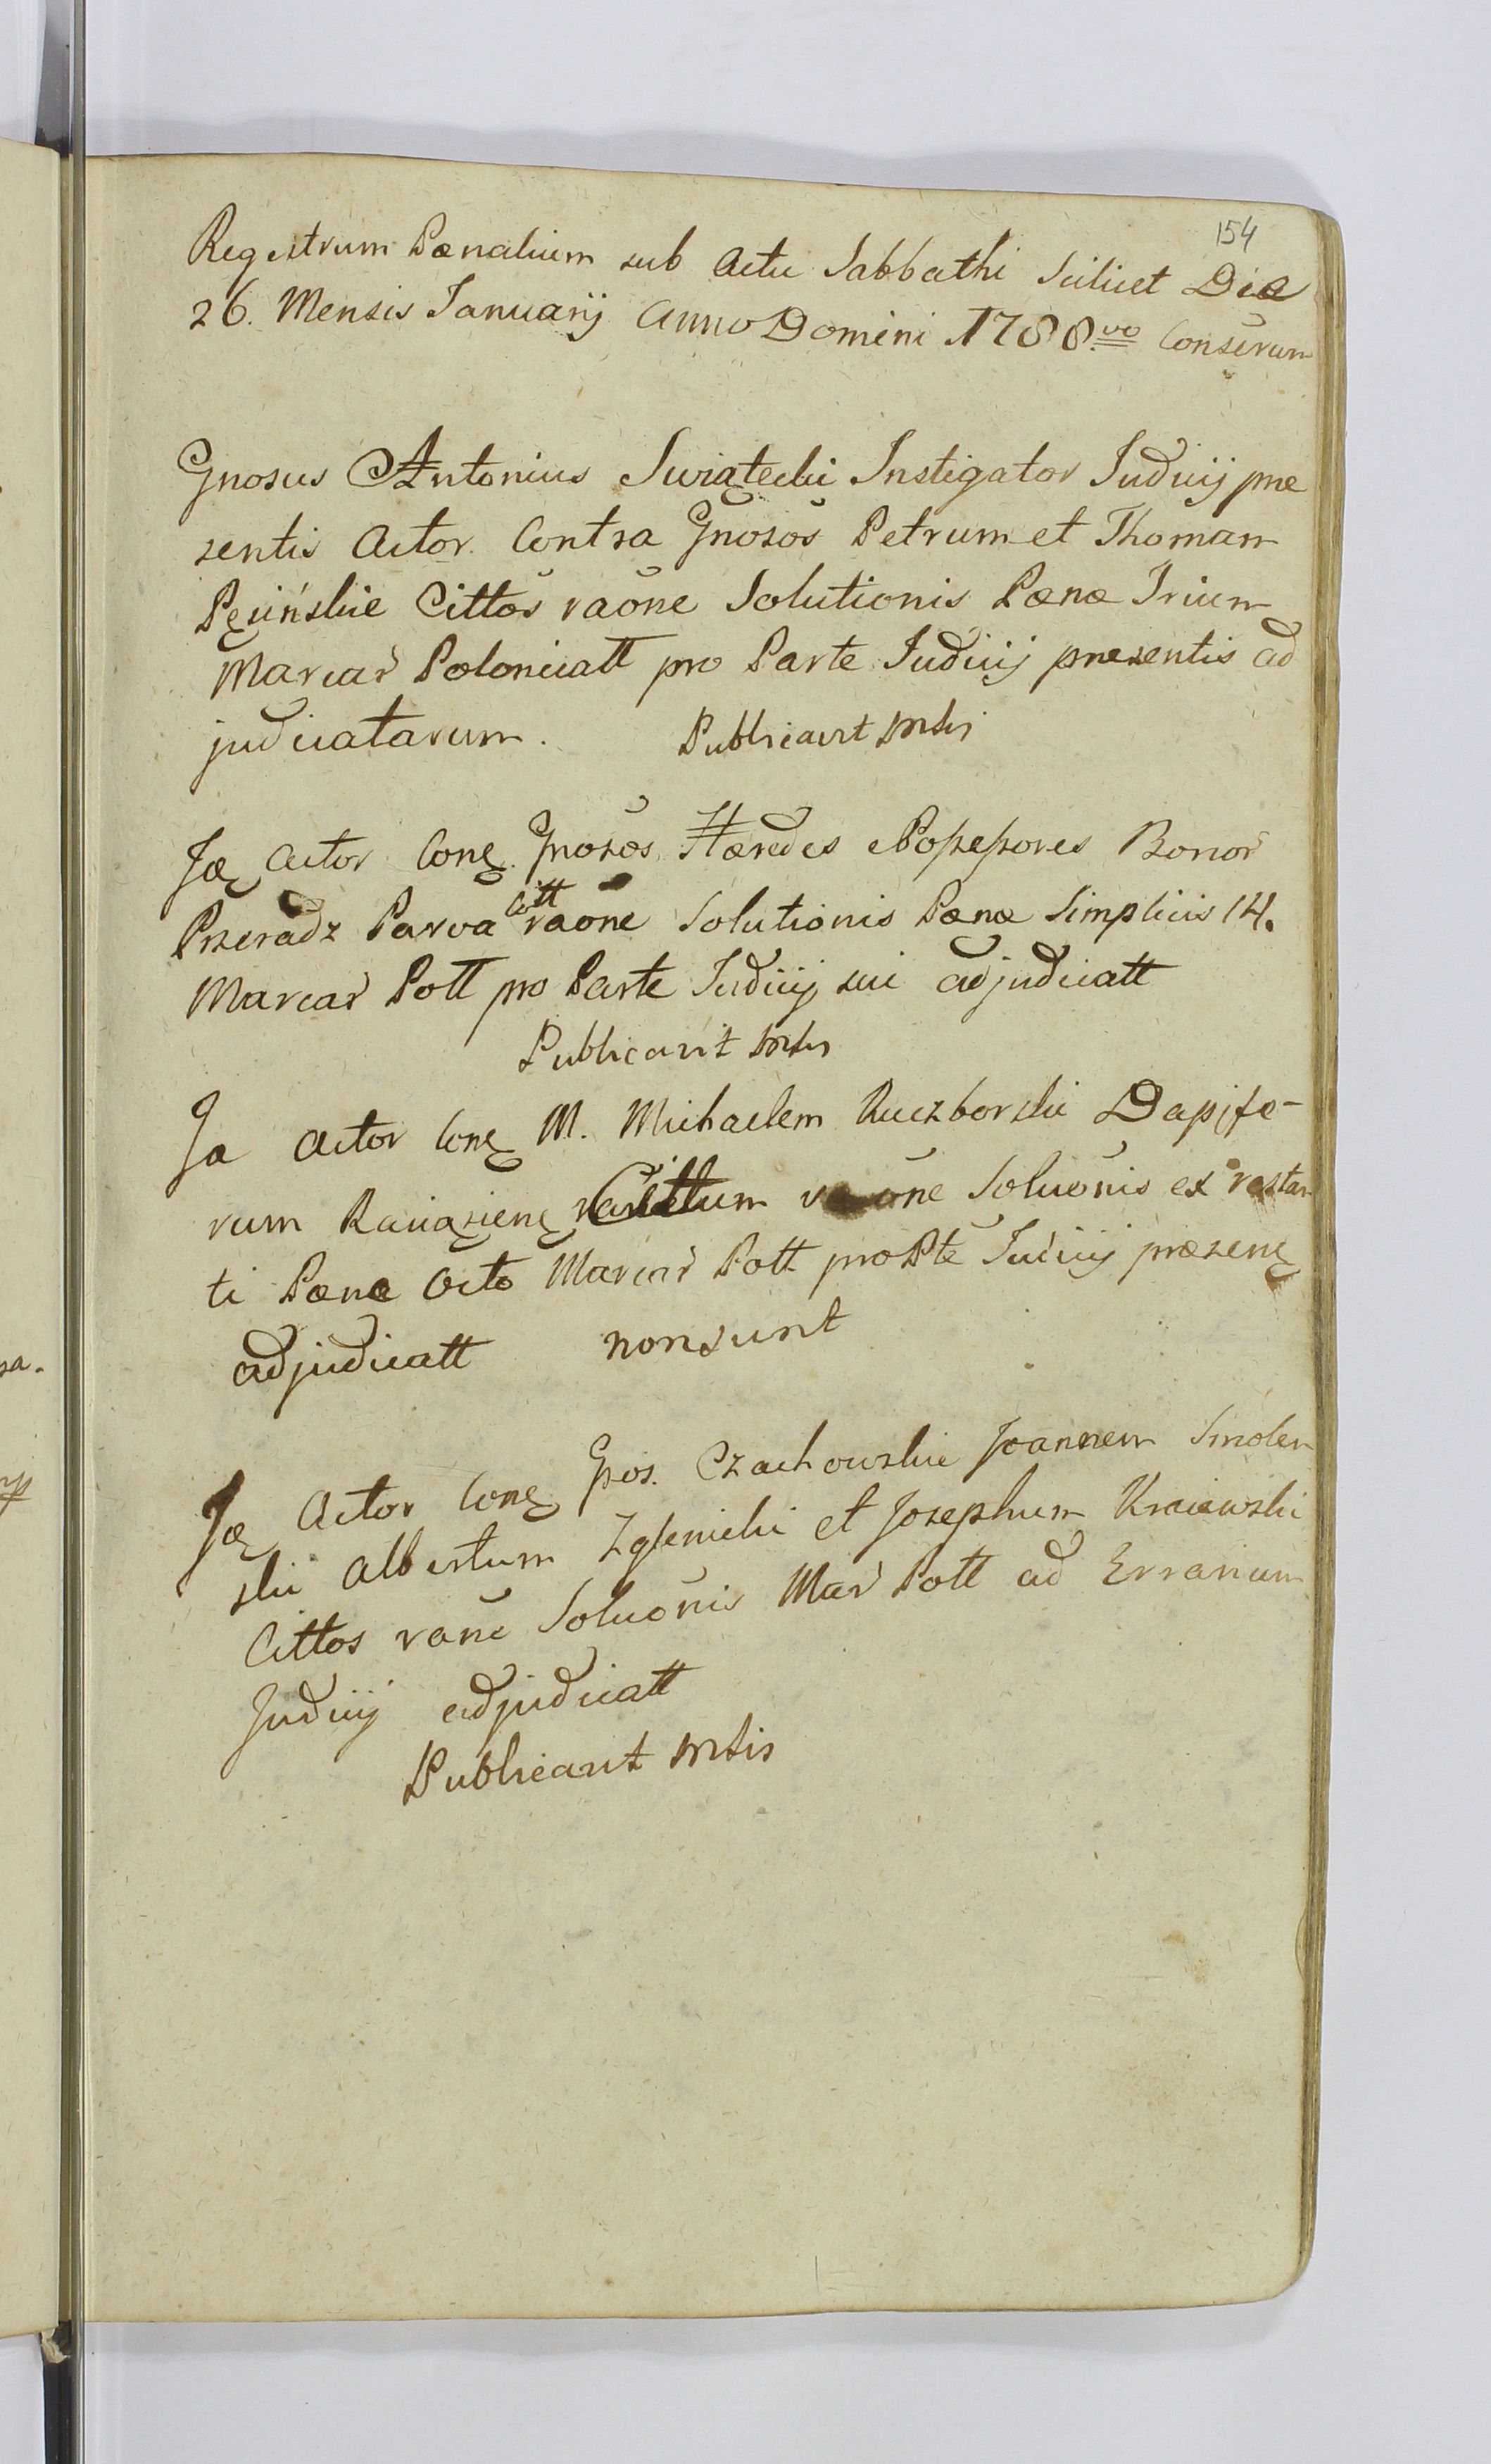 154
Registrum Pænalium sub Actu Sabbathi Scilicet Die
26. Mensis Januarij Anno Domini 1788vo Conserum
Gnosus Antonius Swiątecki Instigator Judicij præ
sentis Actor Contra Gnosos Petrum et Thomam
Pęsińskie Cittos raõne Solutionis Pænæ Trium
Marcar Polonicatt pro Parte Judicij præsentis ad
judicatarum. Publicavit
Actor Conę Gnosos Hæredes Possessores Bonor
Przeradz Parva Citt raone Solutionis Pænæ Simplicis 14.
Marcar Poll pro Parte Judicij sui adjudicatt
Publicavit
Actor Conę M. Michaelem Ruczborski Dapife-
rum Cittum raõne Soluõnis ex restan
ti Pænæ Octo Marcar Poll pro Pte Judicij præsenę
adjudicatt non sunt
Actor Conę Czachowskie Joannem Smolen
ski Albertum Zglenicki et Josephum Kraiewski
Cittos rane Soluõnis Mar Poll ad Errarium
Judicij adjudicatt
Publicavit